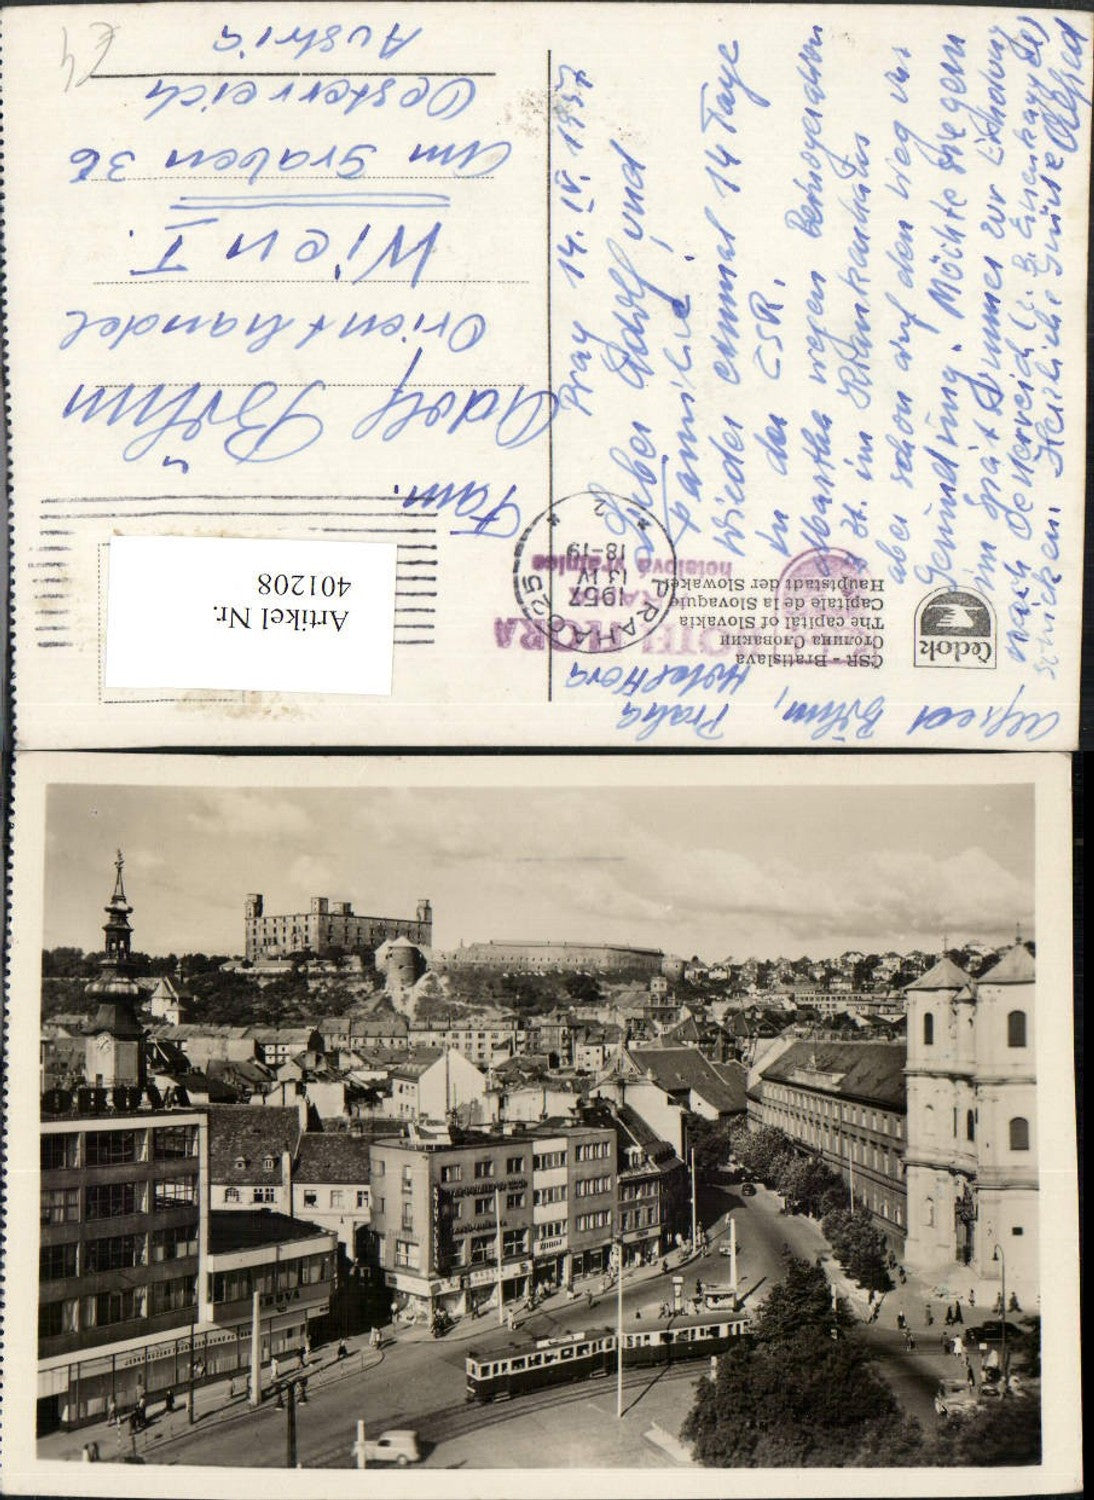 Alfred Böhm, Praha
Hotel Flora
Prag 14. IV. 1957
Lieber Adolf und
Familie!
Wieder einmal 14 Tage
in der ČSR.
wegen
ist im Krankenhaus
aber schon auf dem Weg der
Genesung. Möchte
im Spätsommer zur Erholung
nach Österreich
schicken. Herzliche Grüße Alfred
Čedok
ČSR - Bratislava
Столица Словакии
The capital of Slovakia
Capitale de la Slovaquie
Hauptstadt der Slowakei
HOTEL FLORA
PRAHA
PRAHA 25
1957
13.IV
18-19
2
Artikel Nr.
401208
Fam.
Adolf Böhm
Orienthandel
Wien I.
Am Graben 36
Oesterreich
Austria